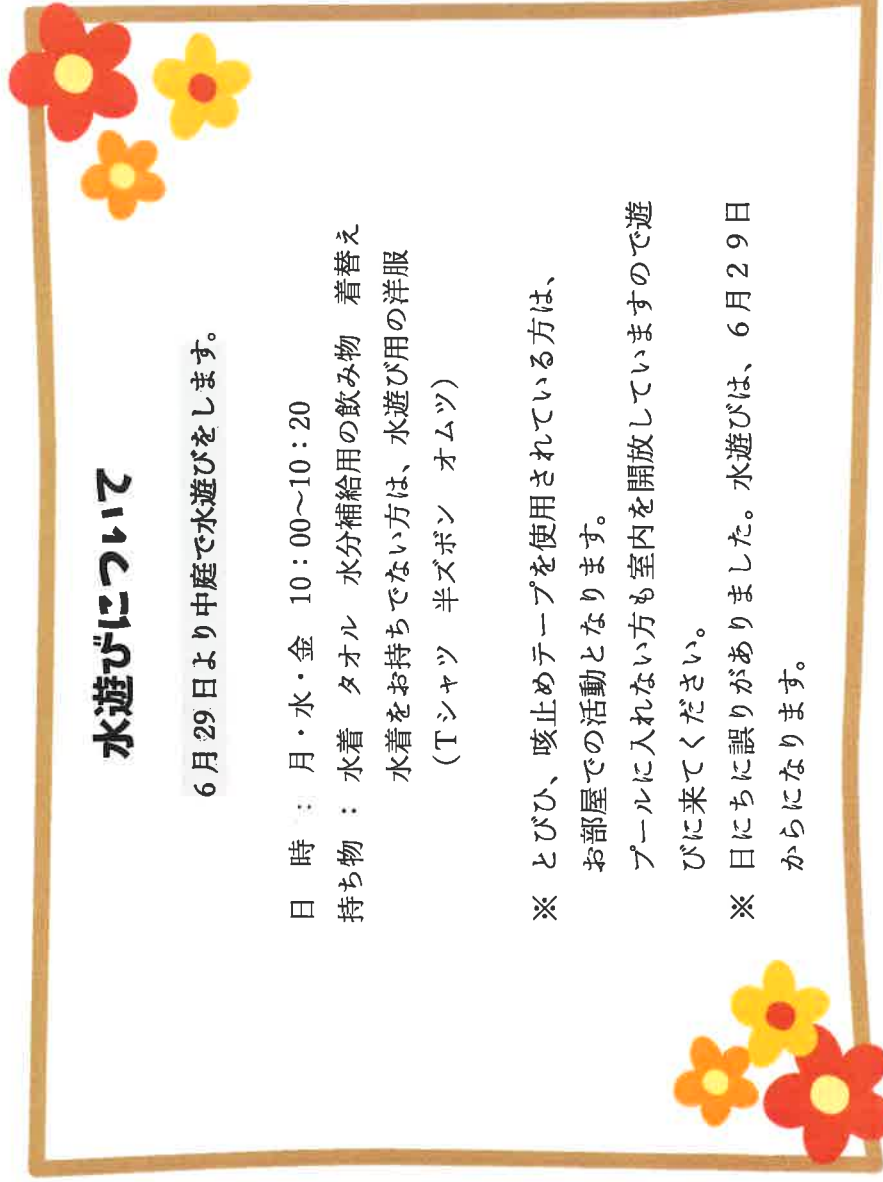 水遊びについて
6月29日より中庭で水遊びをします。
日　時　：　月・水・金　10：00～10：20
持ち物　：　水着　タオル　水分補給用の飲み物　着替え
水着をお持ちでない方は、水遊び用の洋服
（Tシャツ　半ズボン　オムツ）
※　とびひ、咳止めテープを使用されている方は、
お部屋での活動となります。
プールに入れない方も室内を開放していますので遊
びに来てください。
※　日にちに誤りがありました。水遊びは、６月２９日
からになります。